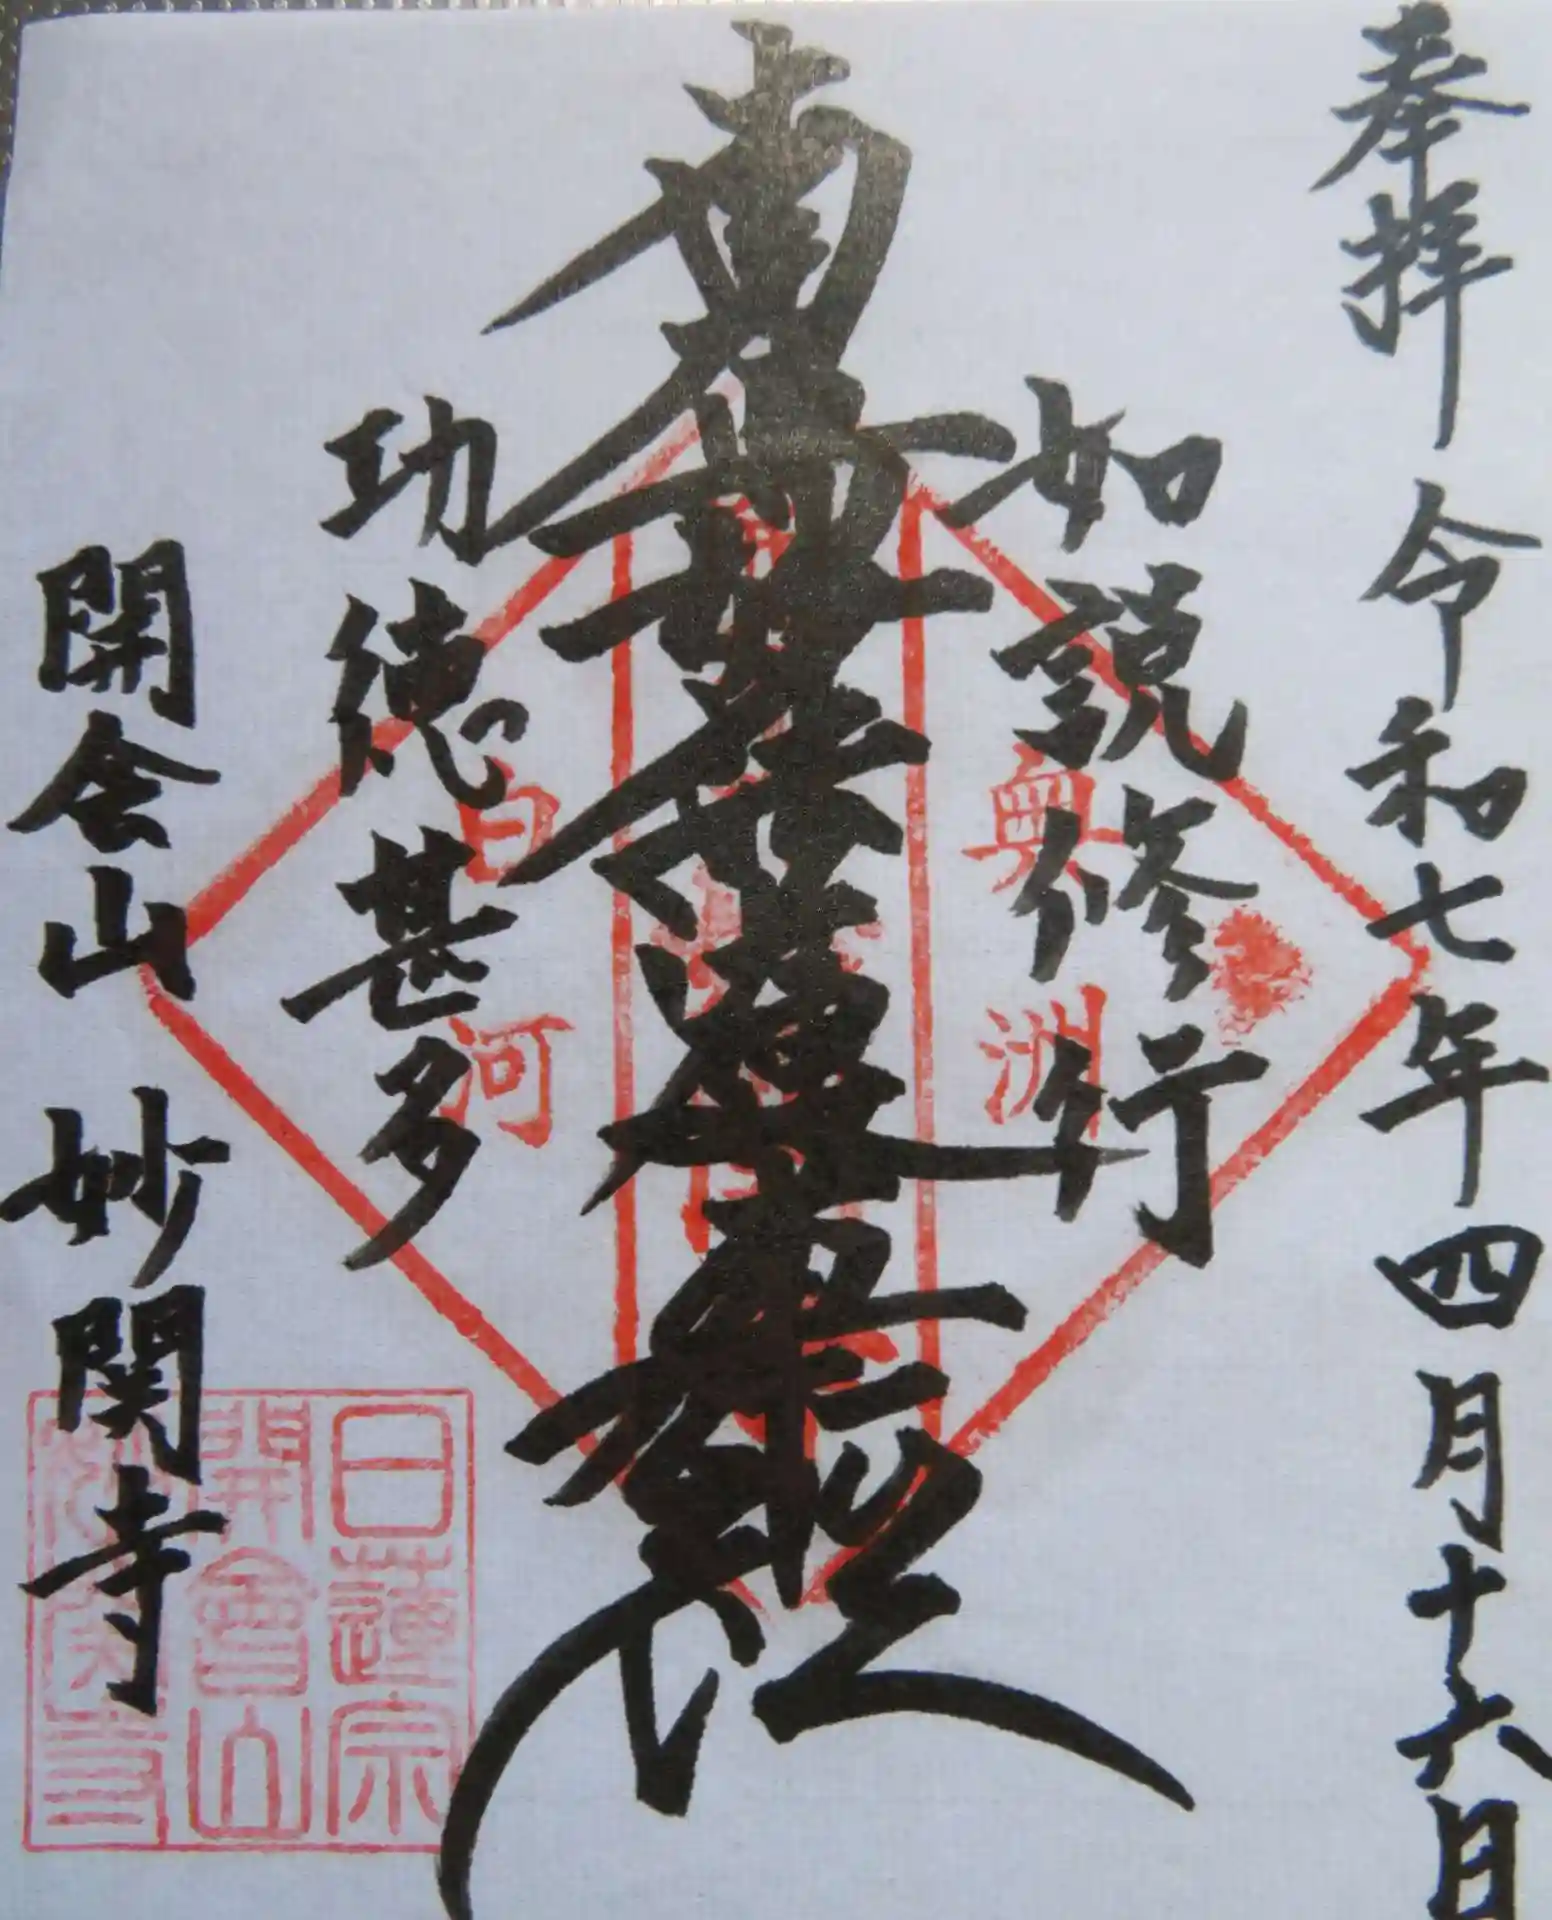 奉拝 令和七年四月十六日
如説修行
南無妙法蓮華経
功徳甚多
開会山 妙関寺
奥州
白河
日蓮宗
開會山
妙関寺